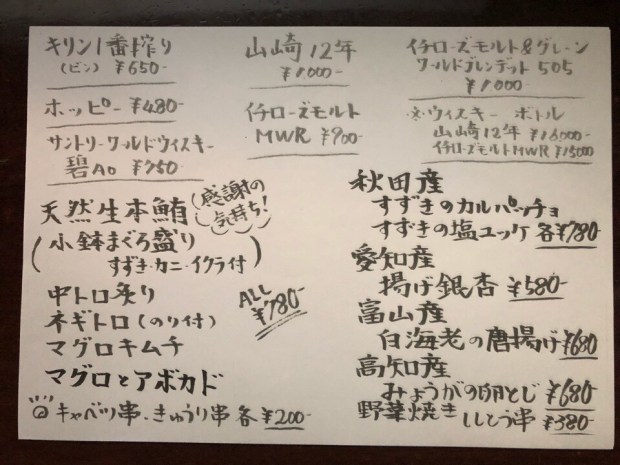 キリン1番搾り
(ビン) ¥650-
ホッピー ¥480-
サントリーワールドウィスキー
碧Ao ¥750-
山崎12年
¥1,000-
イチローズモルト
MWR ¥900-
イチローズモルト&グレーン
ワールドブレンデット 505
¥1,000
※ウィスキー ボトル
山崎12年 ¥16000-
イチローズモルトMWR ¥15000
天然生本鮪
感謝の
気持ち!
(小鉢まぐろ盛り
すずき・カニ・イクラ付)
中トロ炙り
ネギトロ(のり付)
マグロキムチ
マグロとアボカド
ALL
¥780-
キャベツ串・きゅうり串 各¥200-
秋田産
すずきのカルパッチョ
すずきの塩ユッケ 各¥780-
愛知産
揚げ銀杏 ¥580-
富山産
白海老の唐揚げ ¥680
高知産
みょうがの卵とじ ¥680-
野菜焼き ししとう串 ¥380-